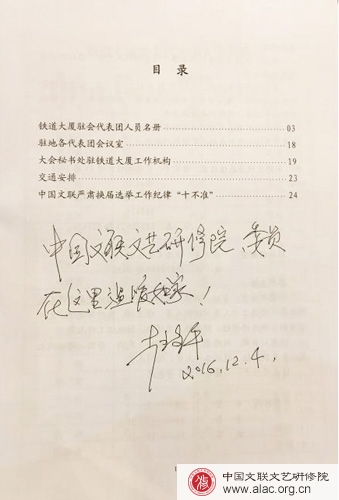 目 录
铁道大厦驻会代表团人员名册 03
驻地各代表团会议室 18
大会秘书处驻铁道大厦工作机构 19
交通安排 23
中国文联严肃换届选举工作纪律“十不准” 24
中国文联文艺研修院、
在这里温暖
2016.12.4.
中国文联文艺研修院
www.alac.org.cn